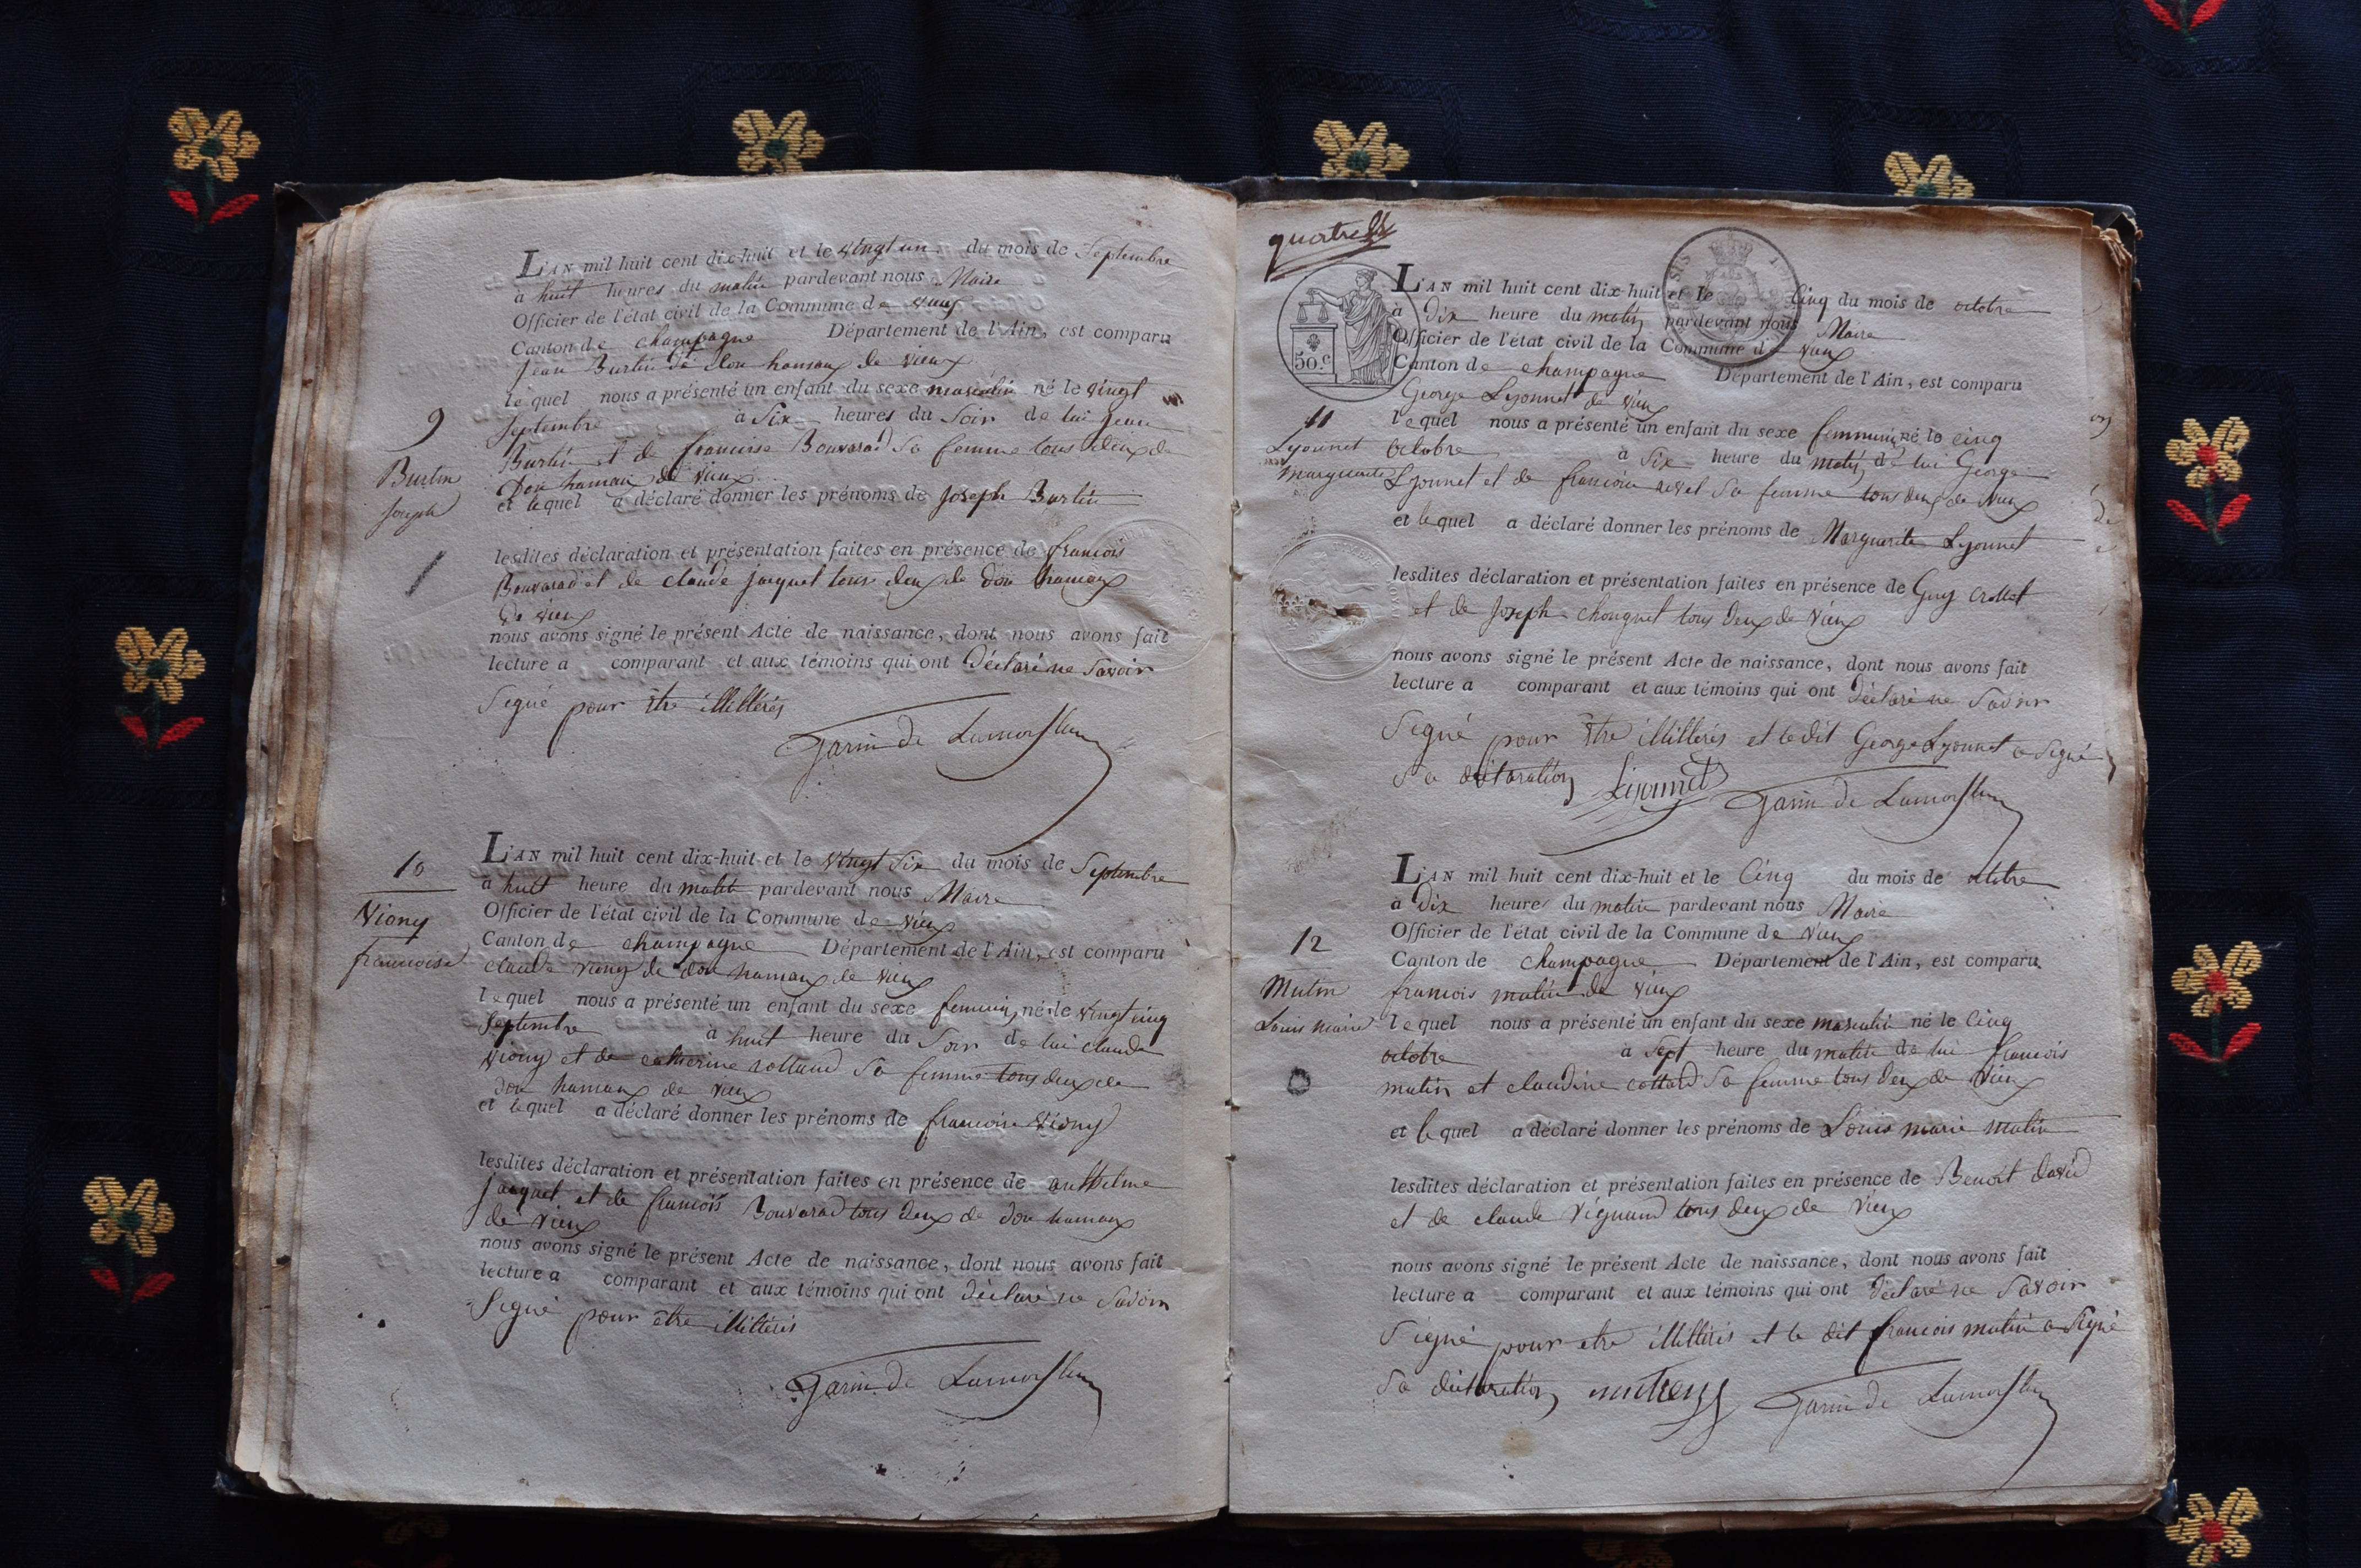 L'AN mil huit cent dix-huit et le vingt un du mois de Septembre
à huit heures du matin pardevant nous Maire
Officier de l'état civil de la Commune de vieux
Canton de champagne Département de l'Ain, est comparu
jean Burtin de don hamaux de vieux
lequel nous a présenté un enfant du sexe masculin né le vingt
Septembre à Six heures du Soir de lui jean
Burtin et de francoise Bouvarad Sa femme tous deux de
Don hamaux de vieux
et lequel a déclaré donner les prénoms de joseph Burtin
9
Burtin
joseph
lesdites déclaration et présentation faites en présence de francois
Bouvarad et de claude jacquet tous deux de don hamaux
de vieux
nous avons signé le présent Acte de naissance, dont nous avons fait
lecture a comparant et aux témoins qui ont Déclaré ne Savoir
Signé pour être illittérés
Garin de Lamorflan
10
Viony
francoise
L'AN mil huit cent dix-huit et le vingt Six du mois de Septembre
à huit heure du matin pardevant nous Maire
Officier de l'état civil de la Commune de vieux
Canton de champagne Département de l'Ain, est comparu
claude viony de don hamaux de vieux
lequel nous a présenté un enfant du sexe feminin né le vingt cinq
Septembre à huit heure du Soir de lui claude
viony et de catherine rolland Sa femme tous deux de
don hamaux de vieux
et lequel a déclaré donner les prénoms de francoise viony
lesdites déclaration et présentation faites en présence de anthelme
jacquet et de francois Bouvarad tous deux de don hamaux
de vieux
nous avons signé le présent Acte de naissance, dont nous avons fait
lecture a comparant et aux témoins qui ont déclaré ne Savoir
Signé pour être illittérés
Garin de Lamorflan
quatre
50.c
L'AN mil huit cent dix-huit et le Cinq du mois de octobre
à Dix heure du matin pardevant nous Maire
Officier de l'état civil de la Commune de vieux
Canton de champagne Département de l'Ain, est comparu
George Lyonnet de vieux
11
Lyonnet
marguerite
lequel nous a présenté un enfant du sexe femminin né le cinq
octobre à Six heure du matin de lui George
Lyonnet et de francoise revel Sa femme tous deux de vieux
et lequel a déclaré donner les prénoms de Marguerite Lyonnet
lesdites déclaration et présentation faites en présence de Guy crollet
et de joseph chonguet tous deux de vieux
nous avons signé le présent Acte de naissance, dont nous avons fait
lecture a comparant et aux témoins qui ont déclaré ne Savoir
Signé pour être illittérés et ledit George Lyonnet a Signé
Sa déclaration Liyonnet Garin de Lamorflan
L'AN mil huit cent dix-huit et le Cinq du mois de octobre
à Dix heures du matin pardevant nous Maire
Officier de l'état civil de la Commune de vieux
Canton de champagne Département de l'Ain, est comparu
francois mutin de vieux
12
Mutin
Louis marie
lequel nous a présenté un enfant du sexe masculin né le Cinq
octobre à Sept heure du matin de lui francois
mutin et claudine cottard Sa femme tous deux de vieux
et lequel a déclaré donner les prénoms de Louis marie mutin
lesdites déclaration et présentation faites en présence de Benoit david
et de claude vignand tous deux de vieux
nous avons signé le présent Acte de naissance, dont nous avons fait
lecture a comparant et aux témoins qui ont déclaré ne Savoir
Signé pour etre illittérés et le dit francois mutin a Signé
Sa déclaration Garin de Lamorflan